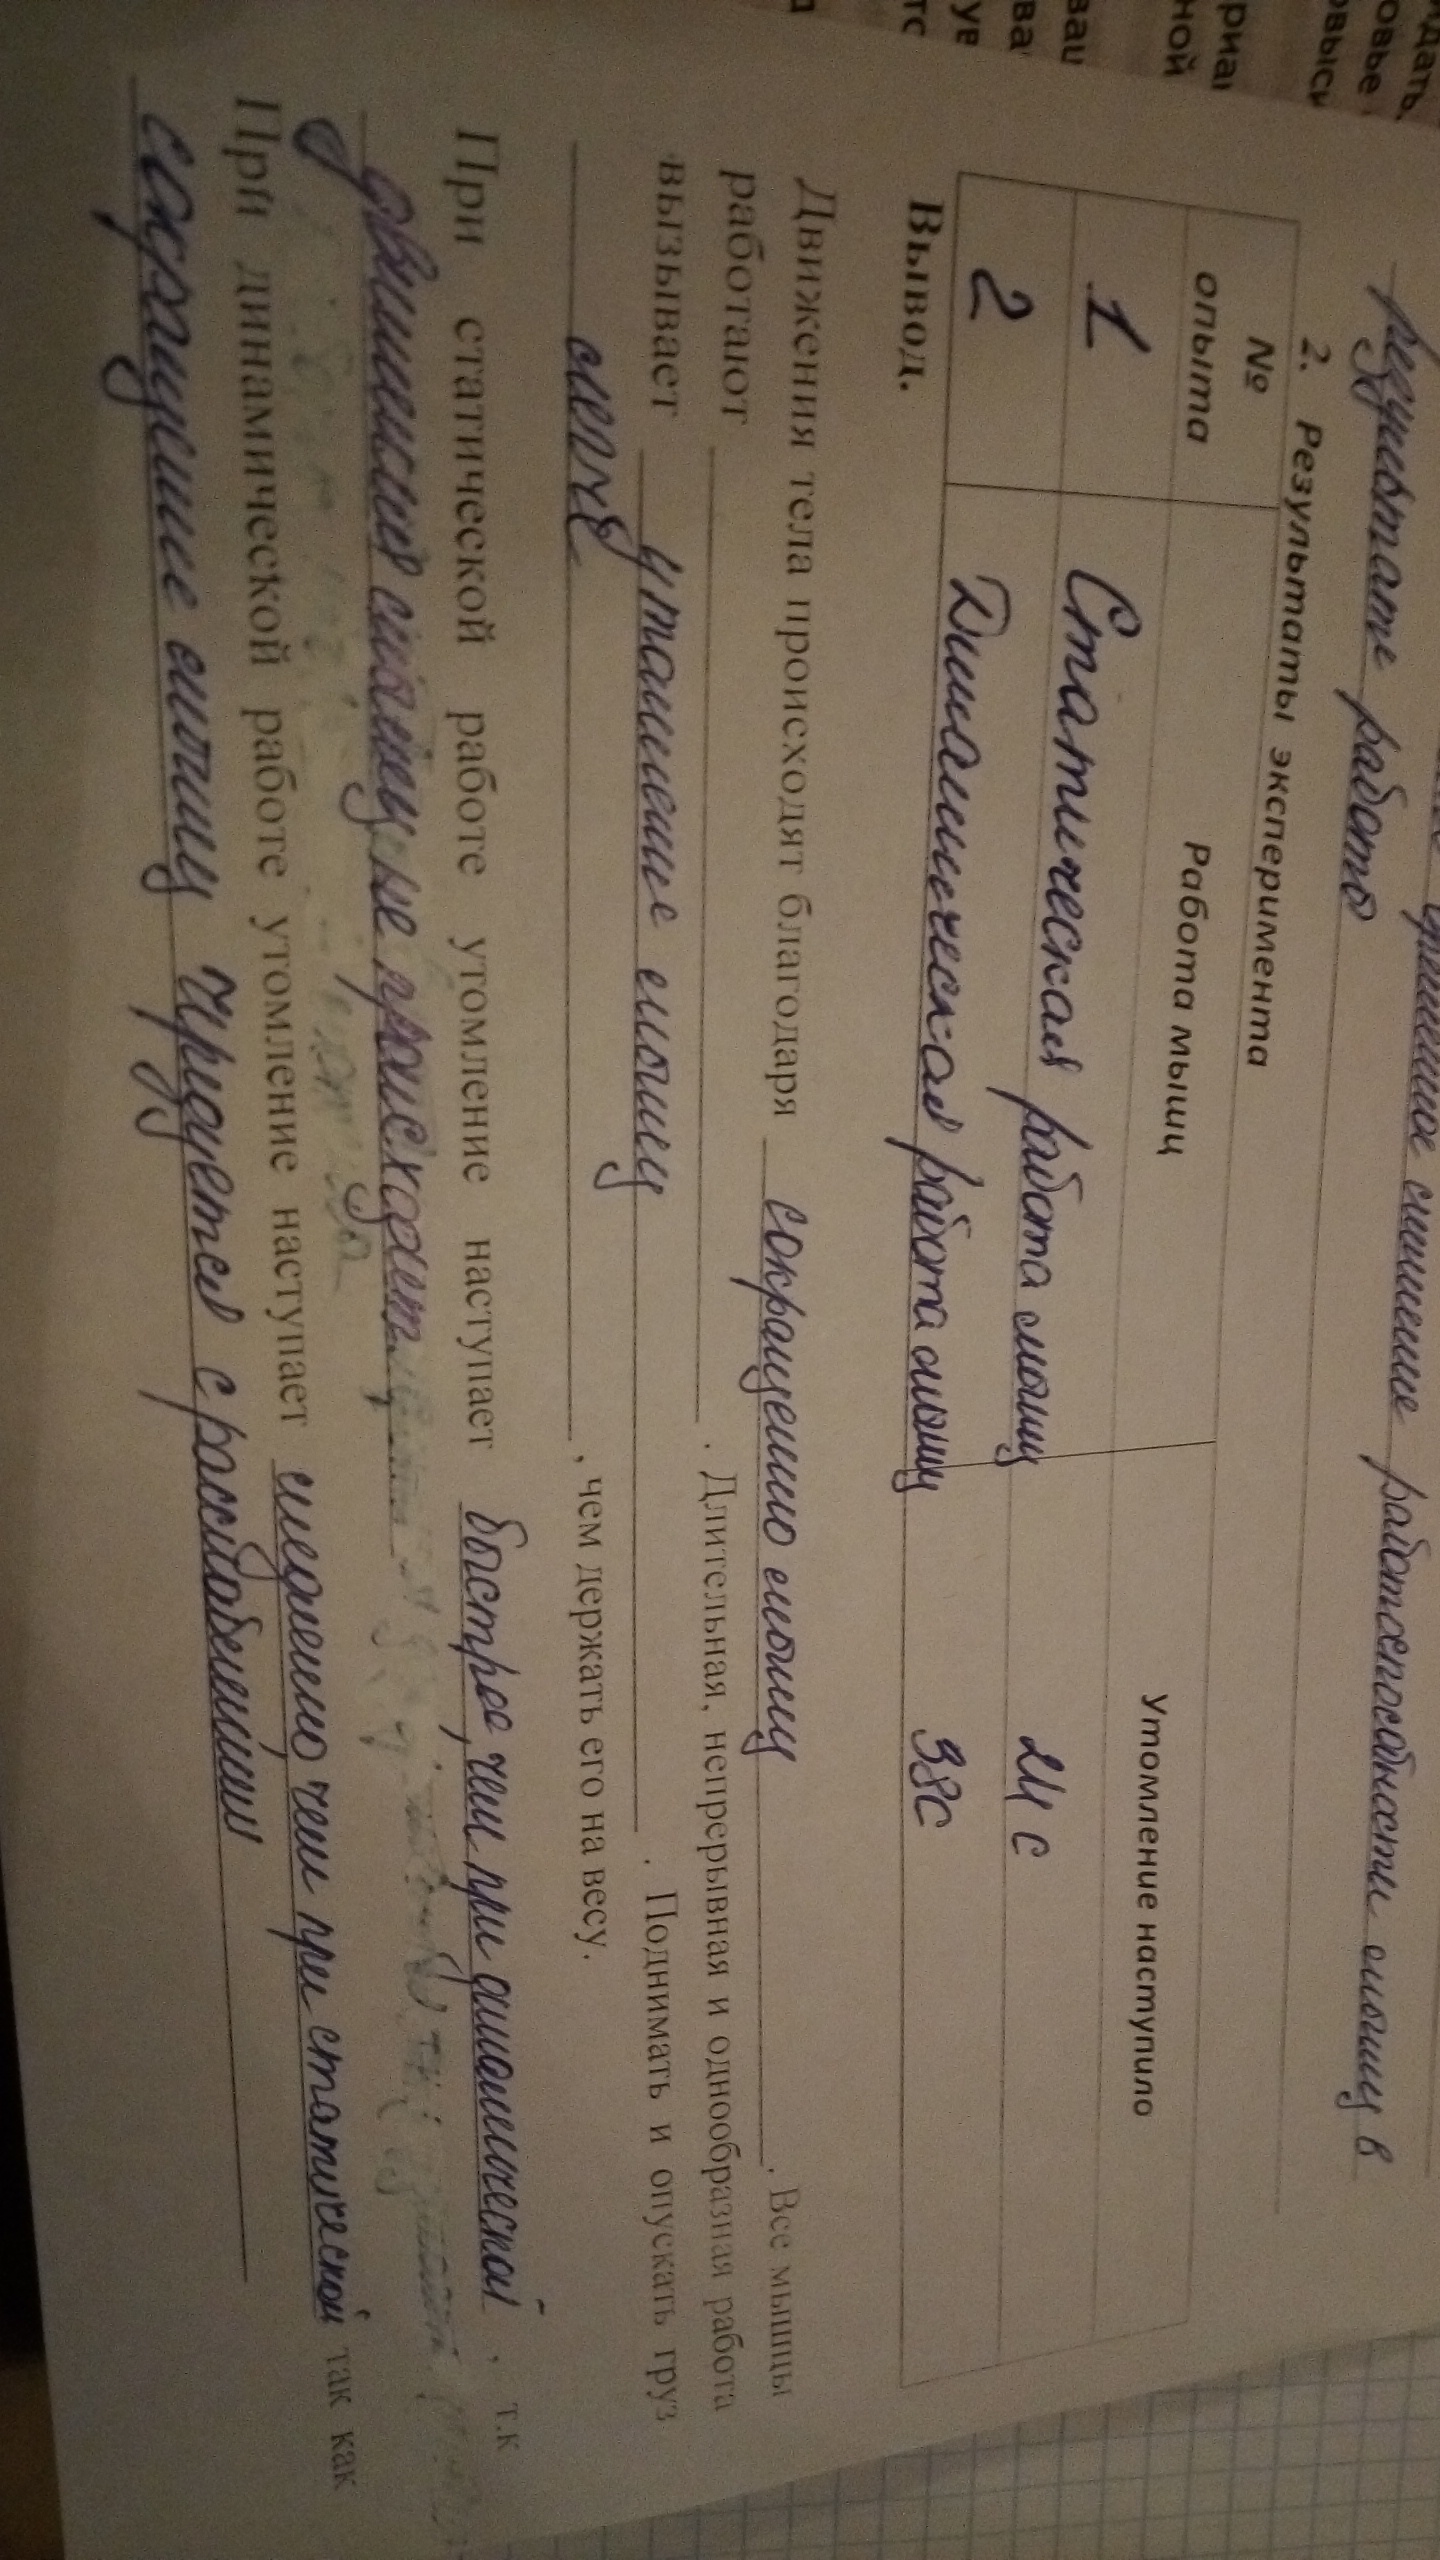 утомление снижение работоспособности мышц в
результате работы
2. Результаты эксперимента
№
опыта
Работа мышц
Утомление наступило
1
Статическая работа мышц
21 с
2
Динамическая работа мышц
38с
Вывод.
Движения тела происходят благодаря сокращению мышц. Все мышцы
работают . Длительная, непрерывная и однообразная работа
вызывает утомление мышц. Поднимать и опускать груз
легче, чем держать его на весу.
При статической работе утомление наступает быстрее, чем при динамической, т.к
движения мышц не происходит
При динамической работе утомление наступает медленно чем при статической так как
сокращение мышц чередуется с расслаблением